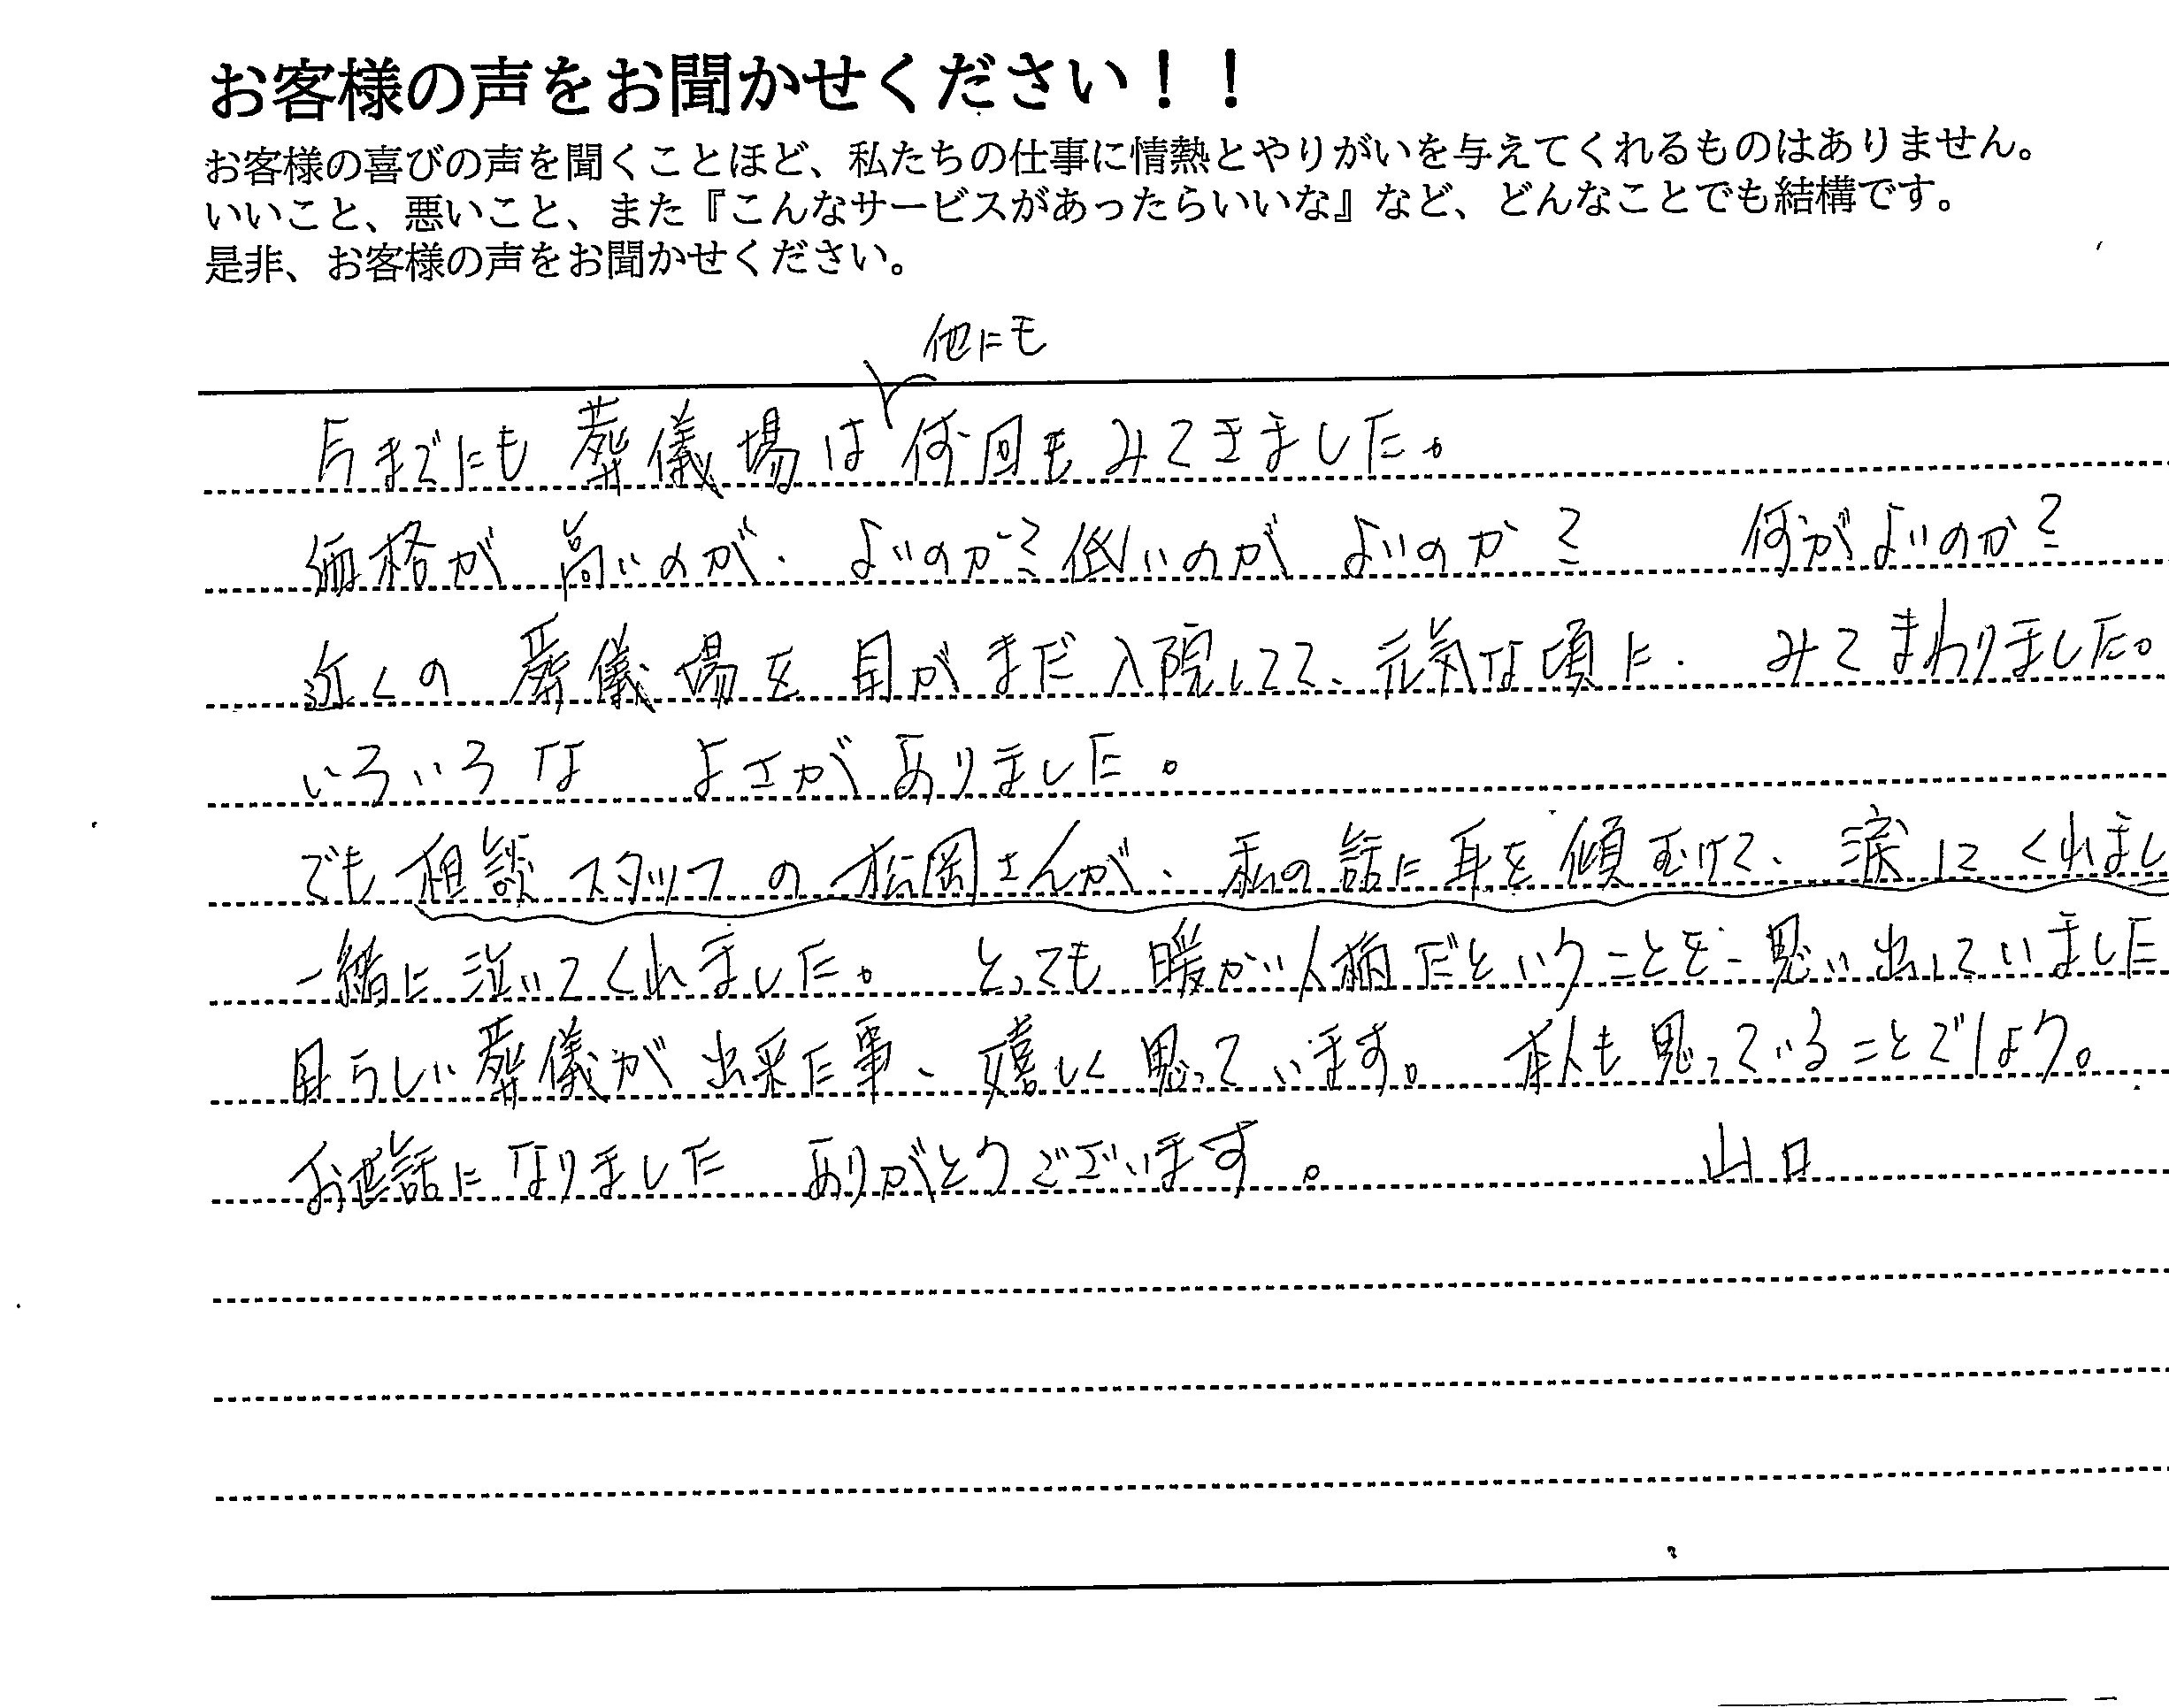 お客様の声をお聞かせください！！
お客様の喜びの声を聞くことほど、私たちの仕事に情熱とやりがいを与えてくれるものはありません。
いいこと、悪いこと、また『こんなサービスがあったらいいな』など、どんなことでも結構です。
是非、お客様の声をお聞かせください。
他にも
今までにも 葬儀場は 何回も みてきました。
価格が 高いのが、よいのか？低いのが よいのか？ 何がよいのか？
近くの 葬儀場を 母がまだ入院してて、元気な頃に、みてまわりました。
いろいろな よさがありました。
でも相談スタッフの松岡さんが、私の話に耳を傾むけて、涙してくれまし
一緒に泣いてくれました。とっても暖かい人柄だということを思い出していました
母らしい葬儀が出来た事、嬉しく思っています。本人も思っていることでしょう。
お世話になりました ありがとうございます。 山口